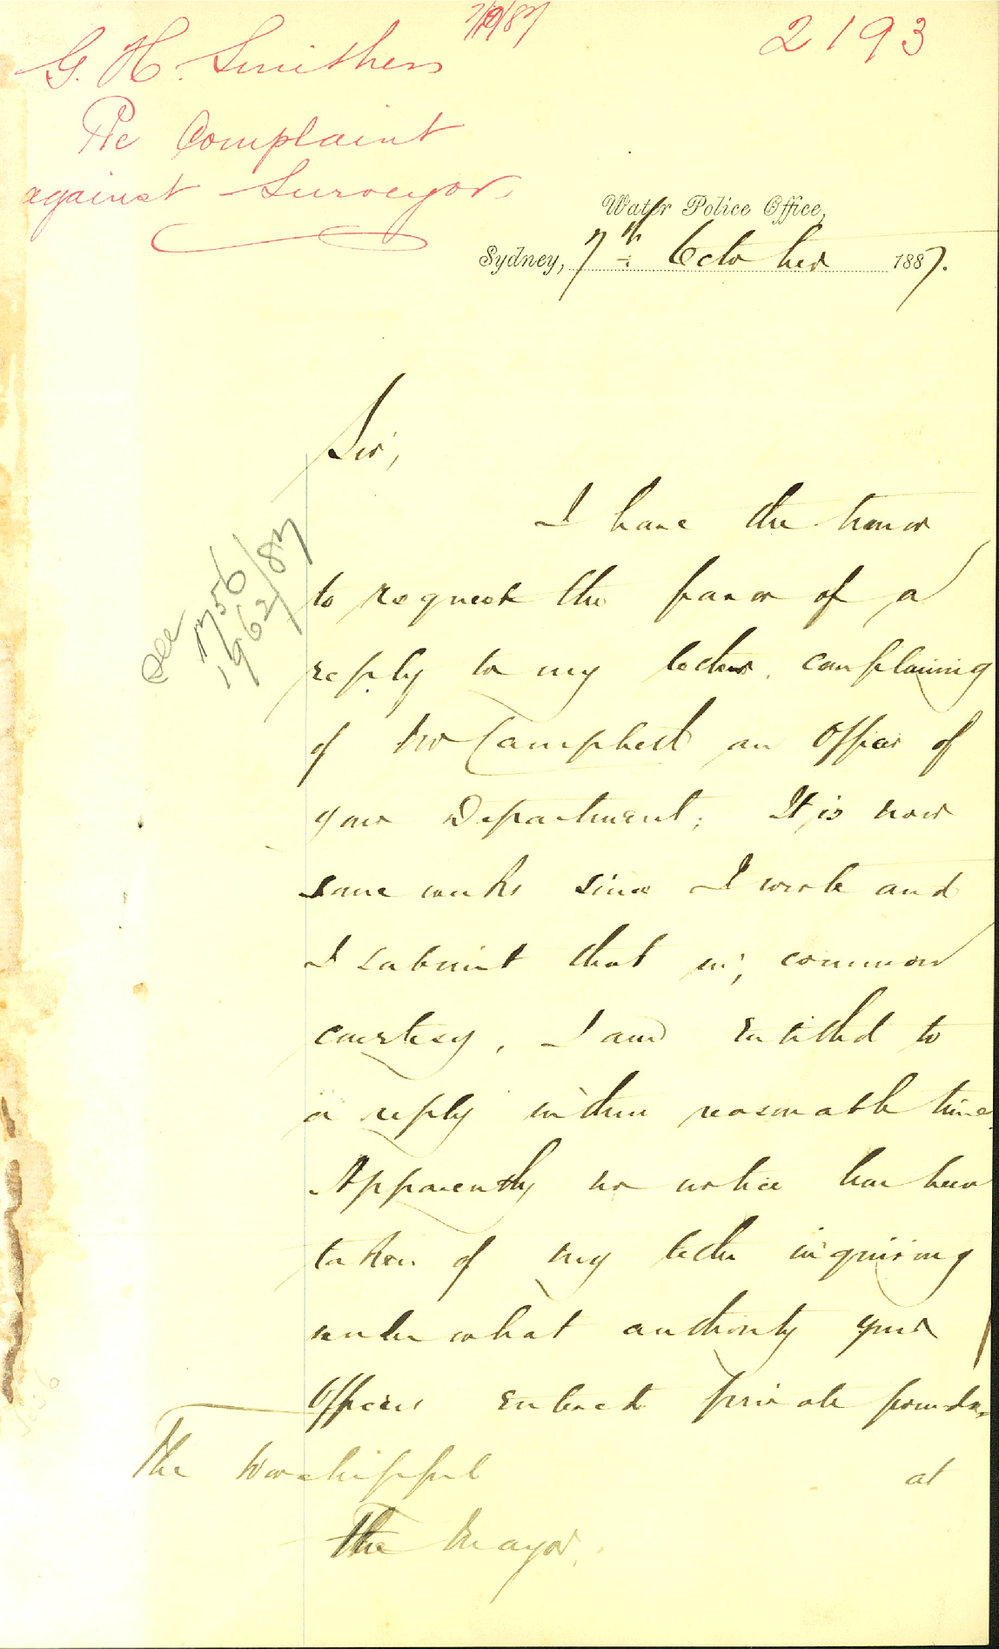 7/10/87
2193
G. H. Smithers
Re Complaint
against Surveyor.
Water Police Office,
Sydney, 7th October 1887.
Sir,
I have the honor
to request the favor of a
reply to my letter, complaining
of Mr Campbell an Officer of
your Department; It is now
some weeks since I wrote and
I submit that in, common
courtesy, I am entitled to
a reply within reasonable time.
Apparently no notice has been
taken of my letter inquiring
under what authority your
Officers entered private grounds
at
The Worshipful
The Mayor.
see
1756
1962/87